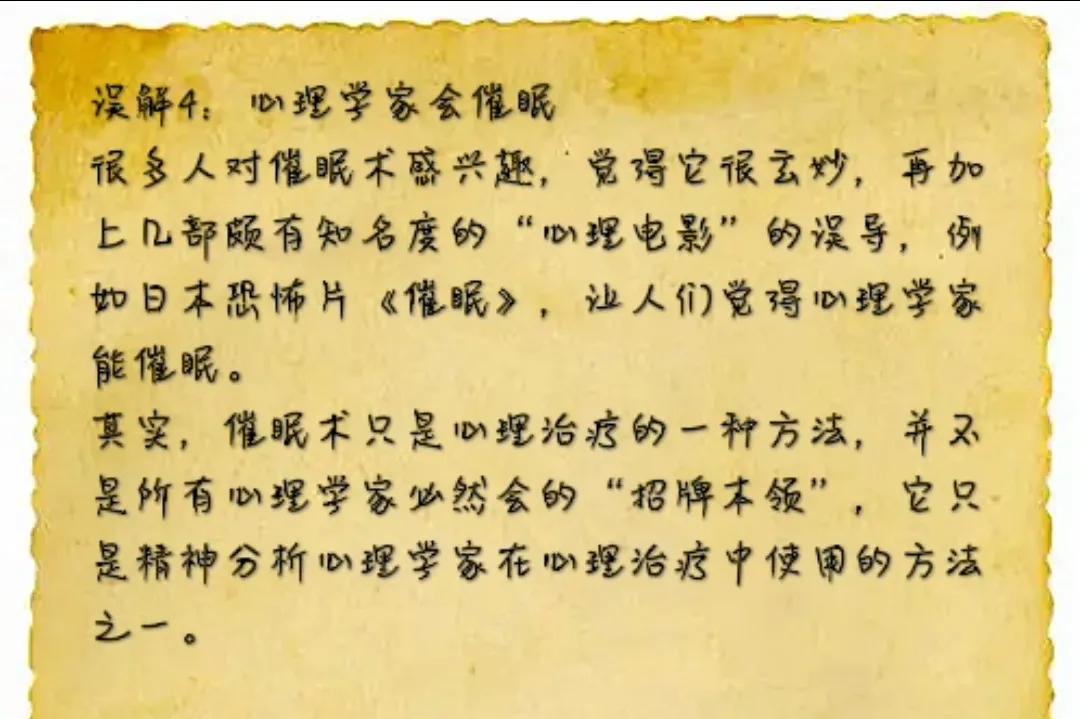 误解4：心理学家会催眠
很多人对催眠术感兴趣，觉得它很玄妙，再加
上几部颇有知名度的“心理电影”的误导，例
如日本恐怖片《催眠》，让人们觉得心理学家
能催眠。
其实，催眠术只是心理治疗的一种方法，并不
是所有心理学家必然会的“招牌本领”，它只
是精神分析心理学家在心理治疗中使用的方法
之一。